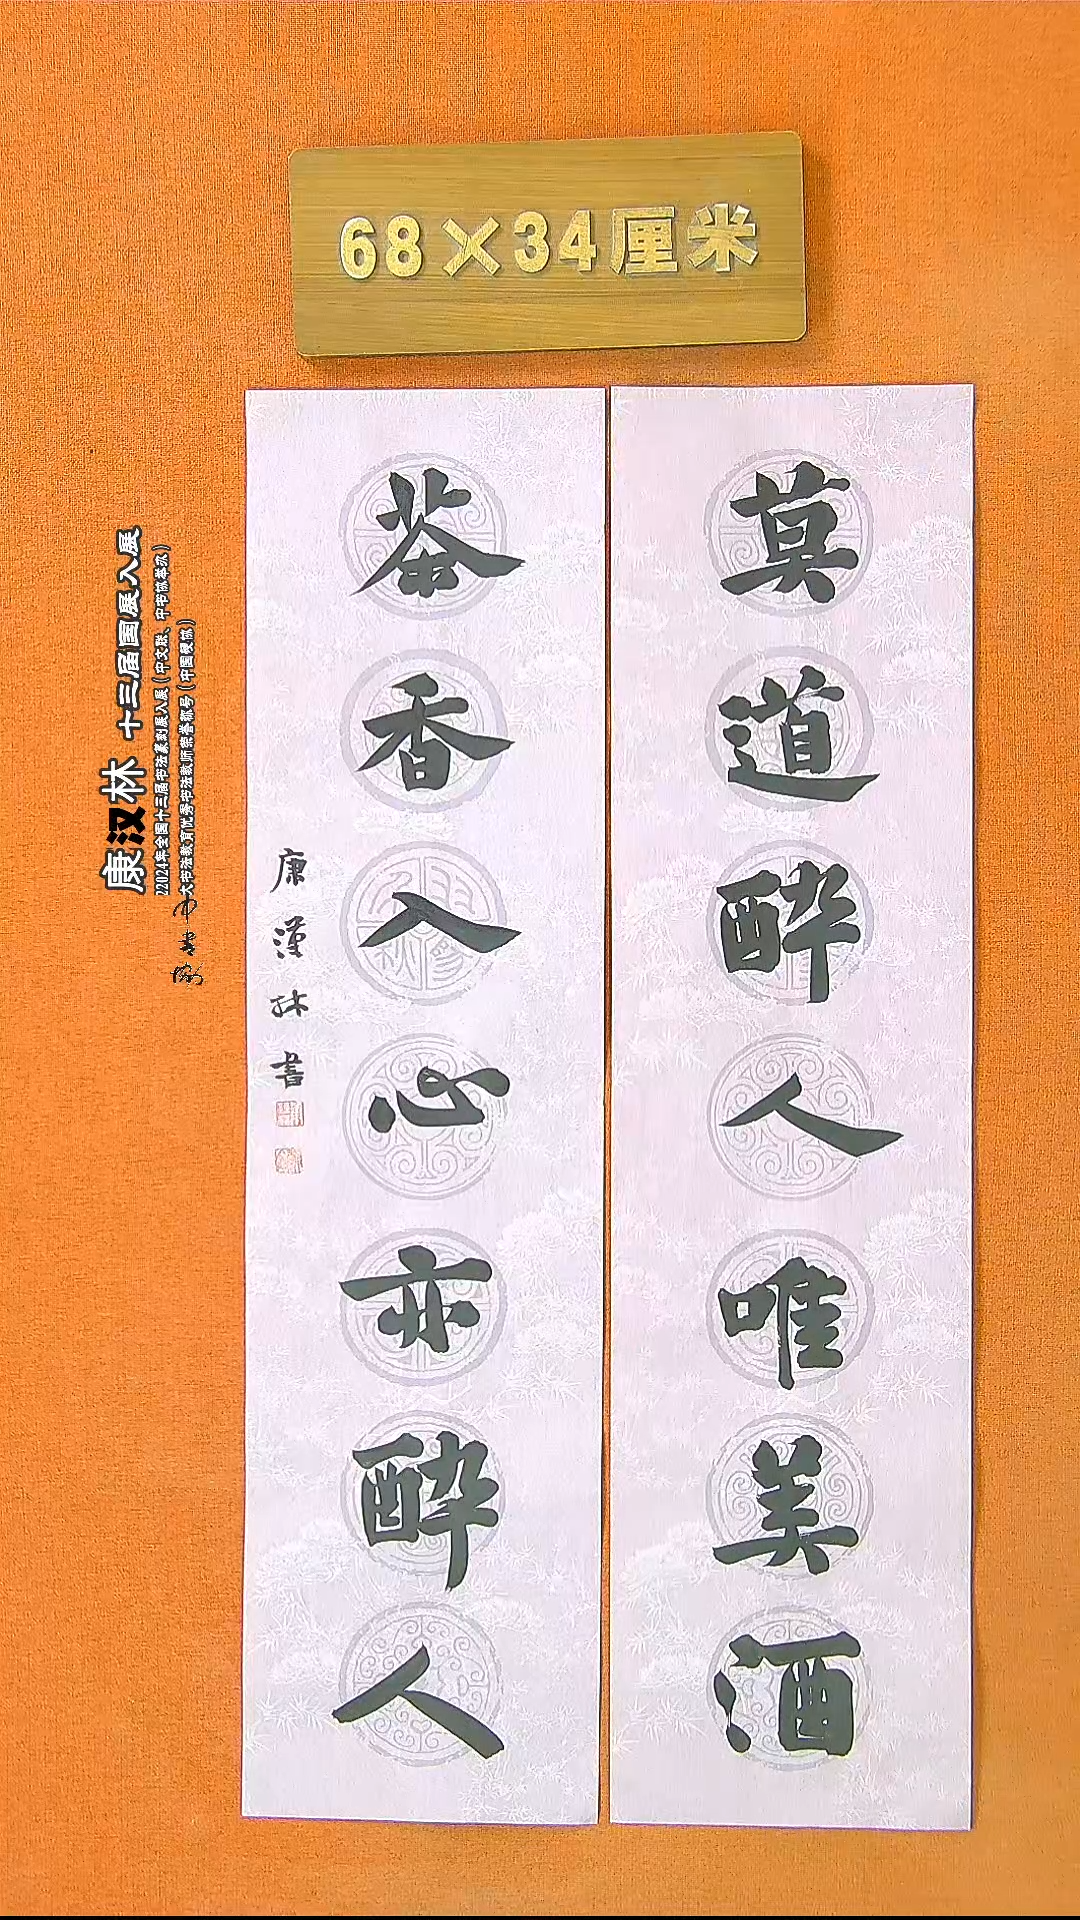 68×34厘米
莫道醉人唯美酒
茶香入心亦醉人
康漢林書
康汉林 十三届国展入展
22024年全国十三届书法篆刻展入展（中文联、中书协举办）
大书法教育优秀书法教师荣誉称号（中国硬协）